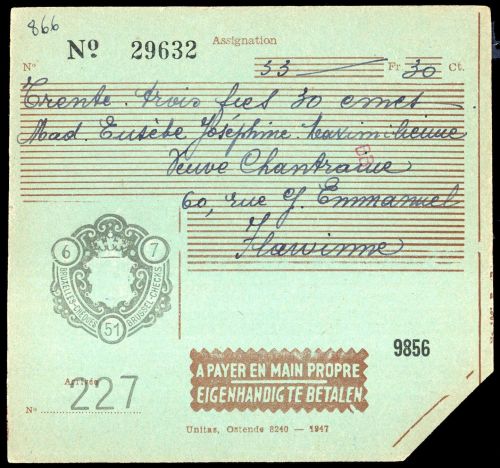 866
Nº 29632
Assignation
Nº 33 Fr. 30 Ct.
Trente trois frcs 30 cmes
Mad. Eusèbe Joséphine Maximilienne
Veuve Chantraine
60, rue J. Emmanuel
Flawinne
6 7
BRUXELLES-CHÈQUES BRUSSEL-CHECKS
51
9856
A PAYER EN MAIN PROPRE
EIGENHANDIG TE BETALEN
Arrivée
Nº 227
Unitas, Ostende 8240 — 1947